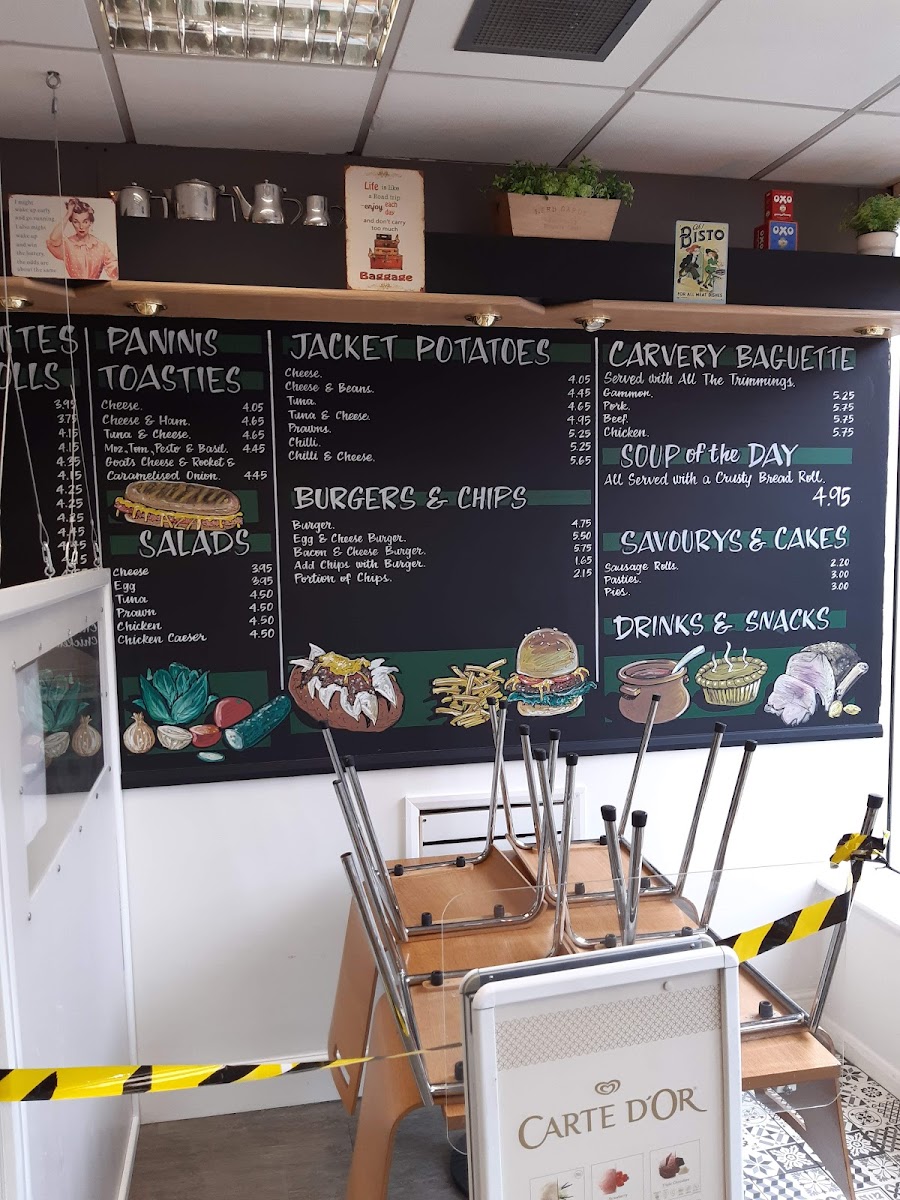 I might
wake up early
and go running
I also might
wake up
and win
the lottery
the odds are
about the same
Life is like
a Road trip
enjoy each
day
and don't carry
too much
Baggage
Ah! BISTO
FOR ALL MEAT DISHES
OXO
OXO
TTES
OLLS
3.95
3.75
4.15
4.15
4.35
4.15
4.25
4.25
4.25
4.45
4.45
PANINIS
TOASTIES
Cheese. 4.05
Cheese & Ham. 4.65
Tuna & Cheese. 4.65
Moz,Tom,Pesto & Basil. 4.45
Goats Cheese & Rocket &
Caramelised Onion. 4.45
SALADS
Cheese 3.95
Egg 3.95
Tuna 4.50
Prawn 4.50
Chicken 4.50
Chicken Caeser 4.50
JACKET POTATOES
Cheese. 4.05
Cheese & Beans. 4.45
Tuna. 4.65
Tuna & Cheese. 4.95
Prawns. 5.25
Chilli. 5.25
Chilli & Cheese. 5.65
BURGERS & CHIPS
Burger. 4.75
Egg & Cheese Burger. 5.50
Bacon & Cheese Burger. 5.75
Add Chips with Burger. 1.65
Portion of Chips. 2.15
CARVERY BAGUETTE
Served with All The Trimmings.
Gammon. 5.25
Pork. 5.75
Beef. 5.75
Chicken. 5.75
SOUP of the DAY
All Served with a Crusty Bread Roll.
4.95
SAVOURYS & CAKES
Sausage Rolls. 2.20
Pasties. 3.00
Pies. 3.00
DRINKS & SNACKS
CARTE D'OR